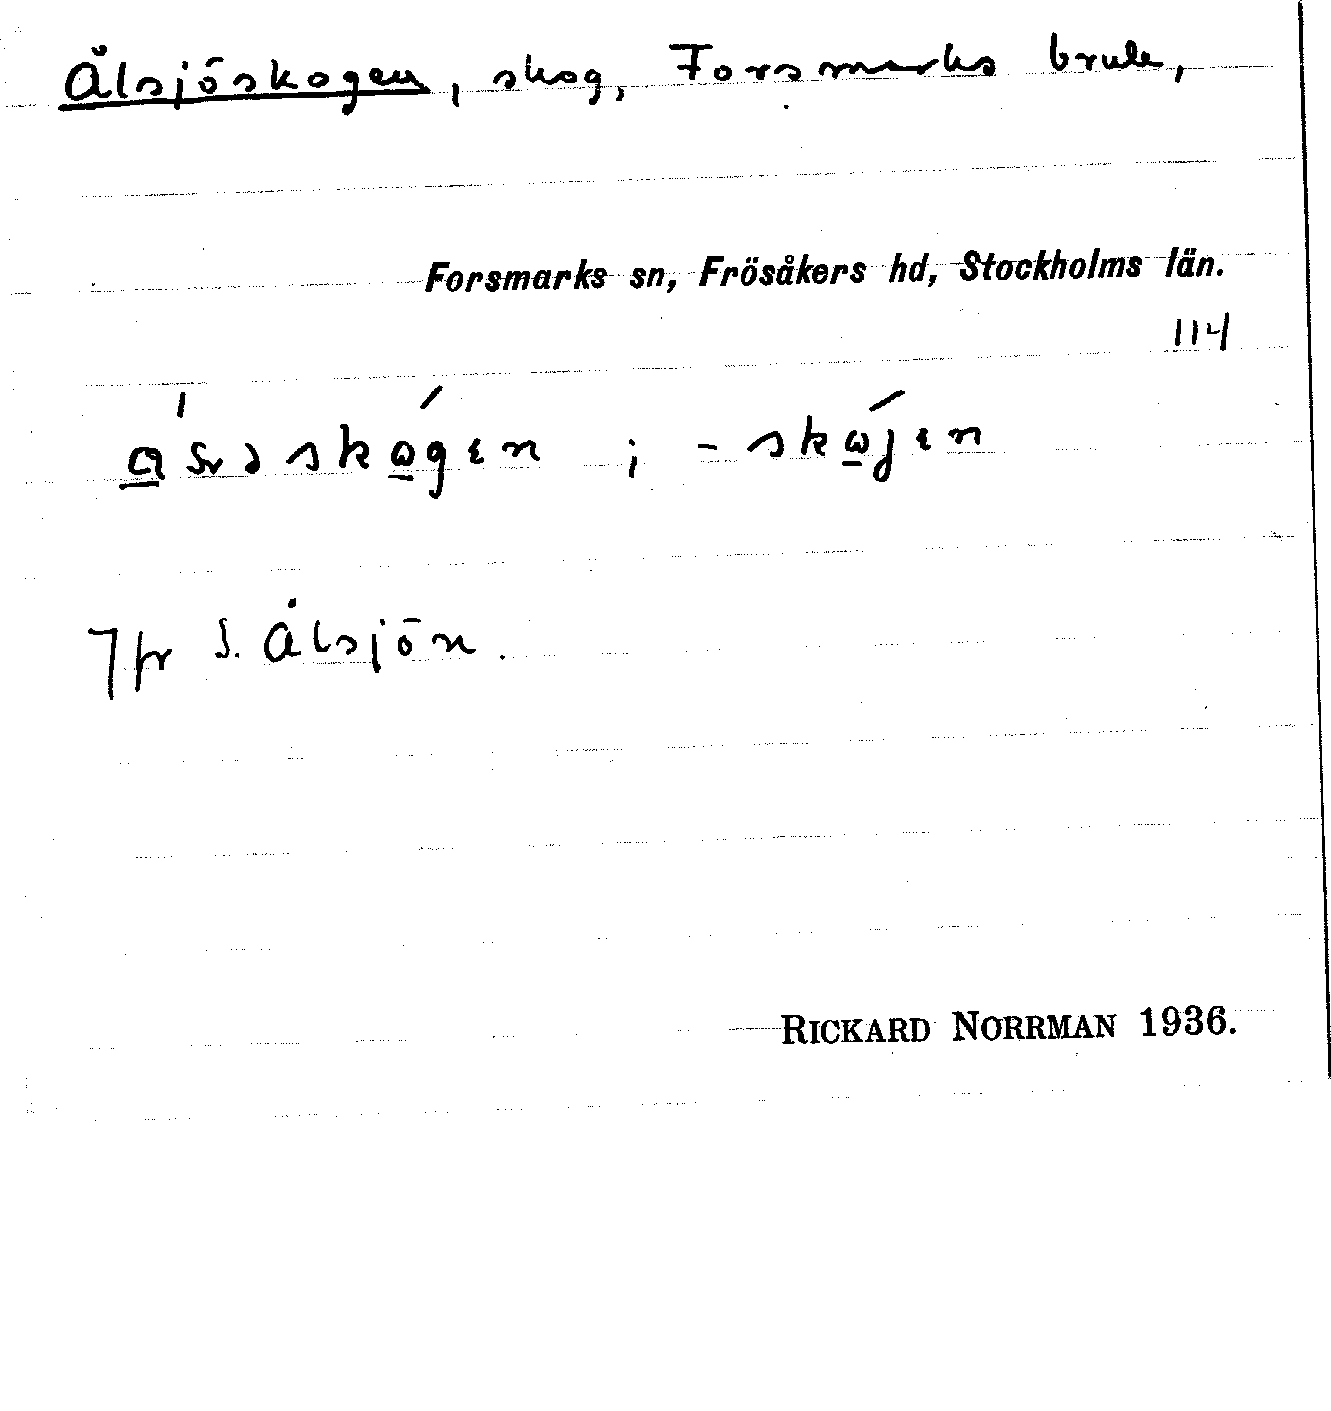 Ålsjöskogen, skog, Forsmarks bruk,
Forsmarks sn, Frösåkers hd, Stockholms län.
114
Jfr S. Ålsjön.
RICKARD NORRMAN 1936.